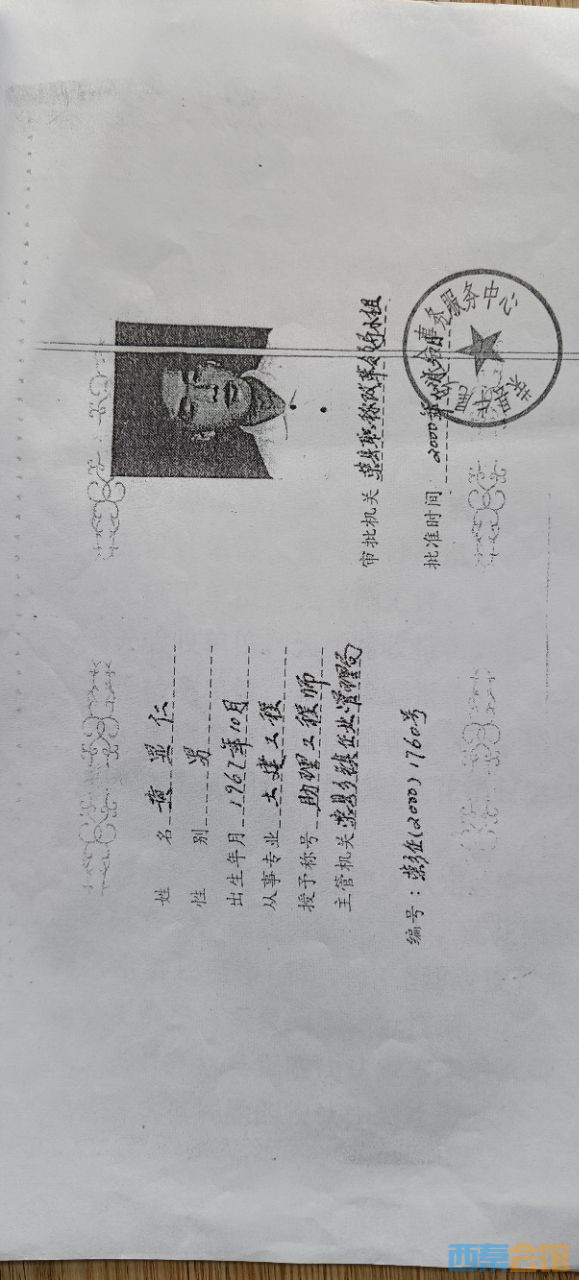 姓名 黄显仁
性别 男
出生年月 1967年10月
从事专业 土建工程
授予称号 助理工程师
主管机关 荣县乡镇企业管理局
编号：荣乡企(2000)1760号
审批机关 荣县职称改革领导小组
批准时间 2000年
事务服务中心
西秦会馆